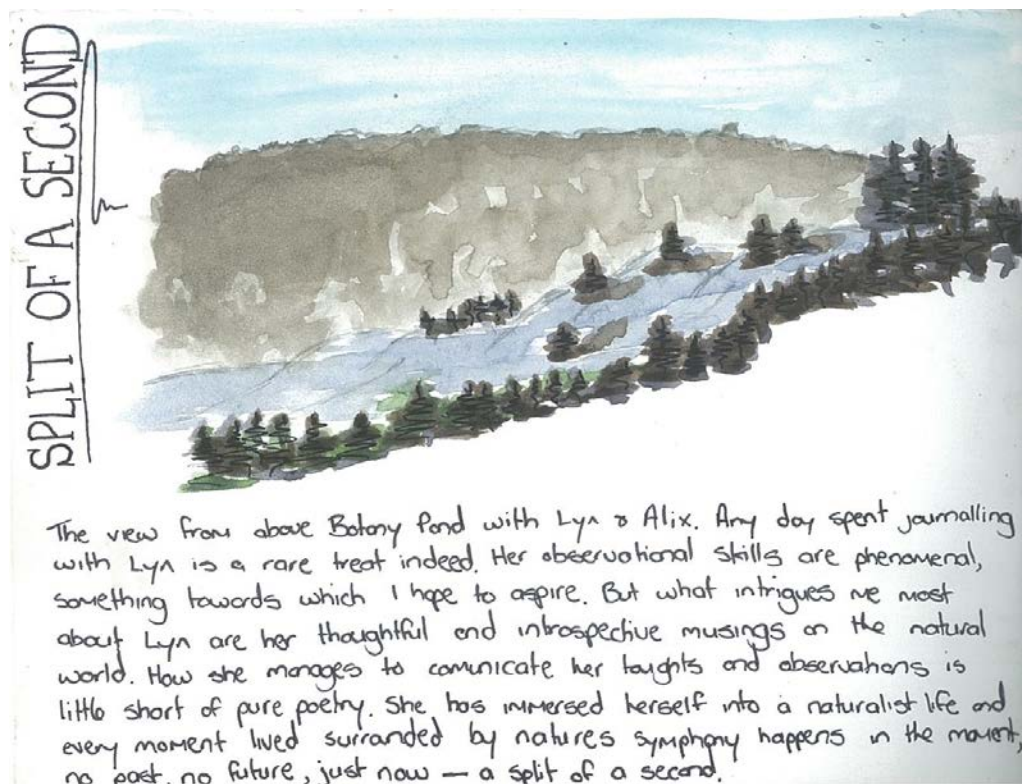 SPLIT OF A SECOND
The view from above Botany Pond with Lyn & Alix. Any day spent journalling
with Lyn is a rare treat indeed. Her observational skills are phenomenal,
something towards which I hope to aspire. But what intrigues me most
about Lyn are her thoughtful and introspective musings on the natural
world. How she manages to comunicate her toughts and observations is
little short of pure poetry. She has immersed herself into a naturalist life and
every moment lived surranded by natures symphony happens in the moment,
no past, no future, just now — a split of a second.